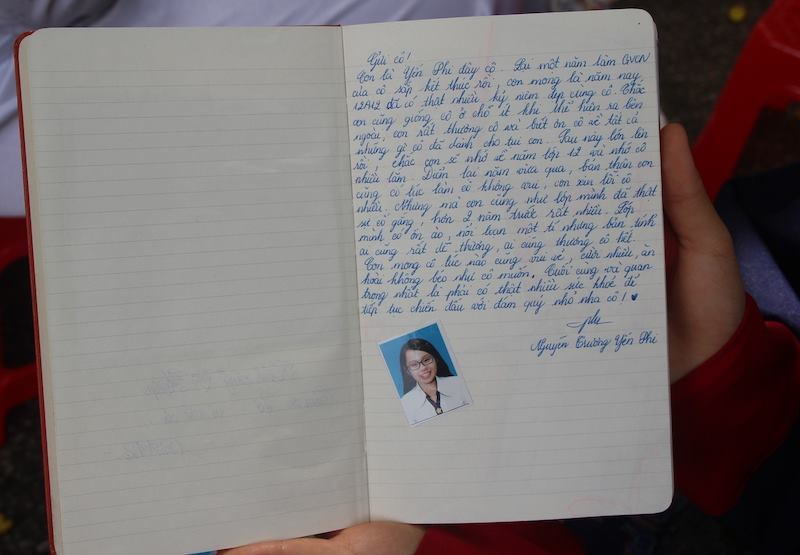 Gửi cô!
Con là Yến Phi đây cô. Sau một năm làm GVCN
của cô sắp kết thúc rồi, con mong là năm nay
12A12 đã có thật nhiều kỷ niệm đẹp cùng cô. Chắc
con cũng giống cô ở chỗ ít khi thể hiện ra bên
ngoài, con rất thương cô và biết ơn cô về tất cả
những gì cô đã dành cho tụi con. Sau này lớn lên
rồi, chắc con sẽ nhớ về năm lớp 12 và nhớ cô
nhiều lắm. Điểm lại năm vừa qua, bản thân con
cũng có lúc làm cô không vui, con xin lỗi cô
nhiều. Nhưng mà con cũng như lớp mình đã thật
sự cố gắng, hơn 2 năm trước rất nhiều. Lớp
mình có ồn ào, nổi loạn một tí nhưng bản tính
ai cũng rất dễ thương, ai cũng thương cô hết.
Con mong cô lúc nào cũng vui vẻ, cười nhiều, ăn
hoài không béo như cô muốn. Cuối cùng và quan
trọng nhất là phải có thật nhiều sức khoẻ để
tiếp tục chiến đấu với đám quỷ nhỏ nha cô! ♥
Phi
Nguyễn Trương Yến Phi